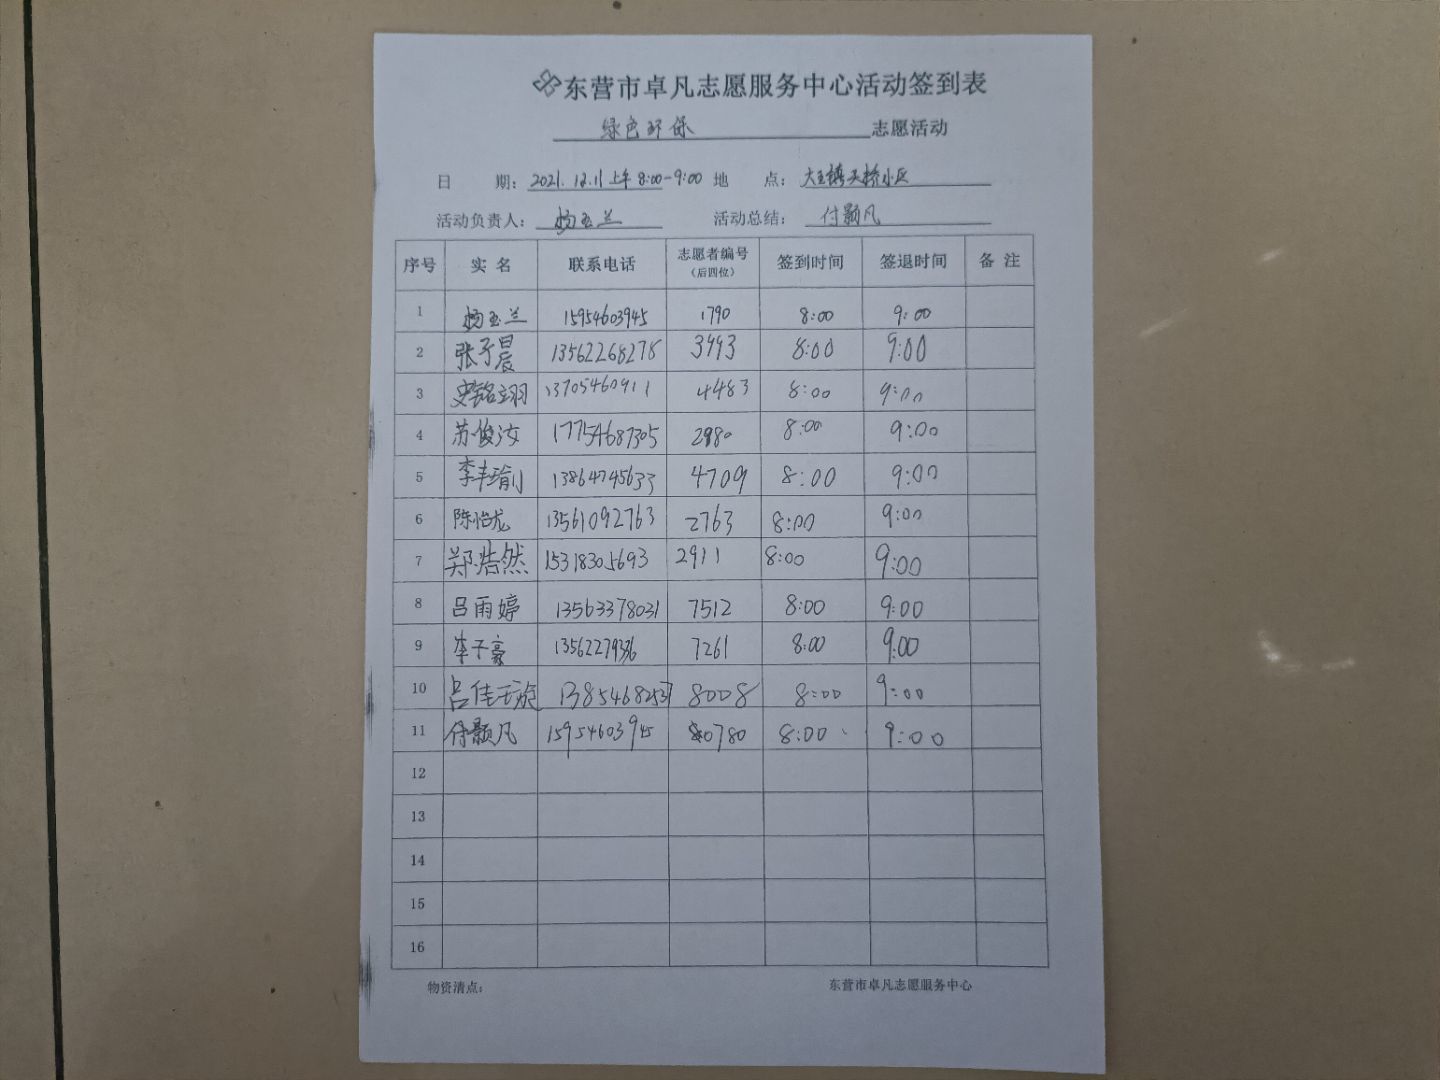 东营市卓凡志愿服务中心活动签到表
绿色环保 志愿活动
日 期: 2021.12.11上午8:00-9:00 地 点: 大王镇天桥小区
活动负责人: 杨玉兰 活动总结: 付颢凡
序号 实名 联系电话 志愿者编号（后四位） 签到时间 签退时间 备注
1 杨玉兰 15954603945 1790 8:00 9:00
2 张予晨 13562268278 3993 8:00 9:00
3 史铭翊 13705460911 4483 8:00 9:00
4 苏俊汝 17754687305 2980 8:00 9:00
5 李丰瑜 13864745633 4709 8:00 9:00
6 陈怡龙 13561092763 2763 8:00 9:00
7 郑浩然 15318305693 2911 8:00 9:00
8 吕雨婷 13563378031 7512 8:00 9:00
9 李子豪 7261 8:00 9:00
10 吕佳璇 13854682537 8008 8:00 9:00
11 付颢凡 15954603945 0780 8:00 9:00
12
13
14
15
16
物资清点: 东营市卓凡志愿服务中心